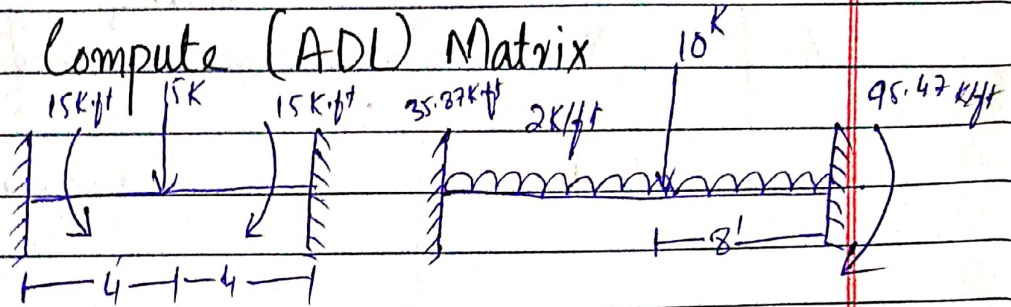 Compute (ADL) Matrix
10K
15K.ft 15K 15K.ft 35.37K.ft 2K/ft 95.47 K/ft
8'
4 4